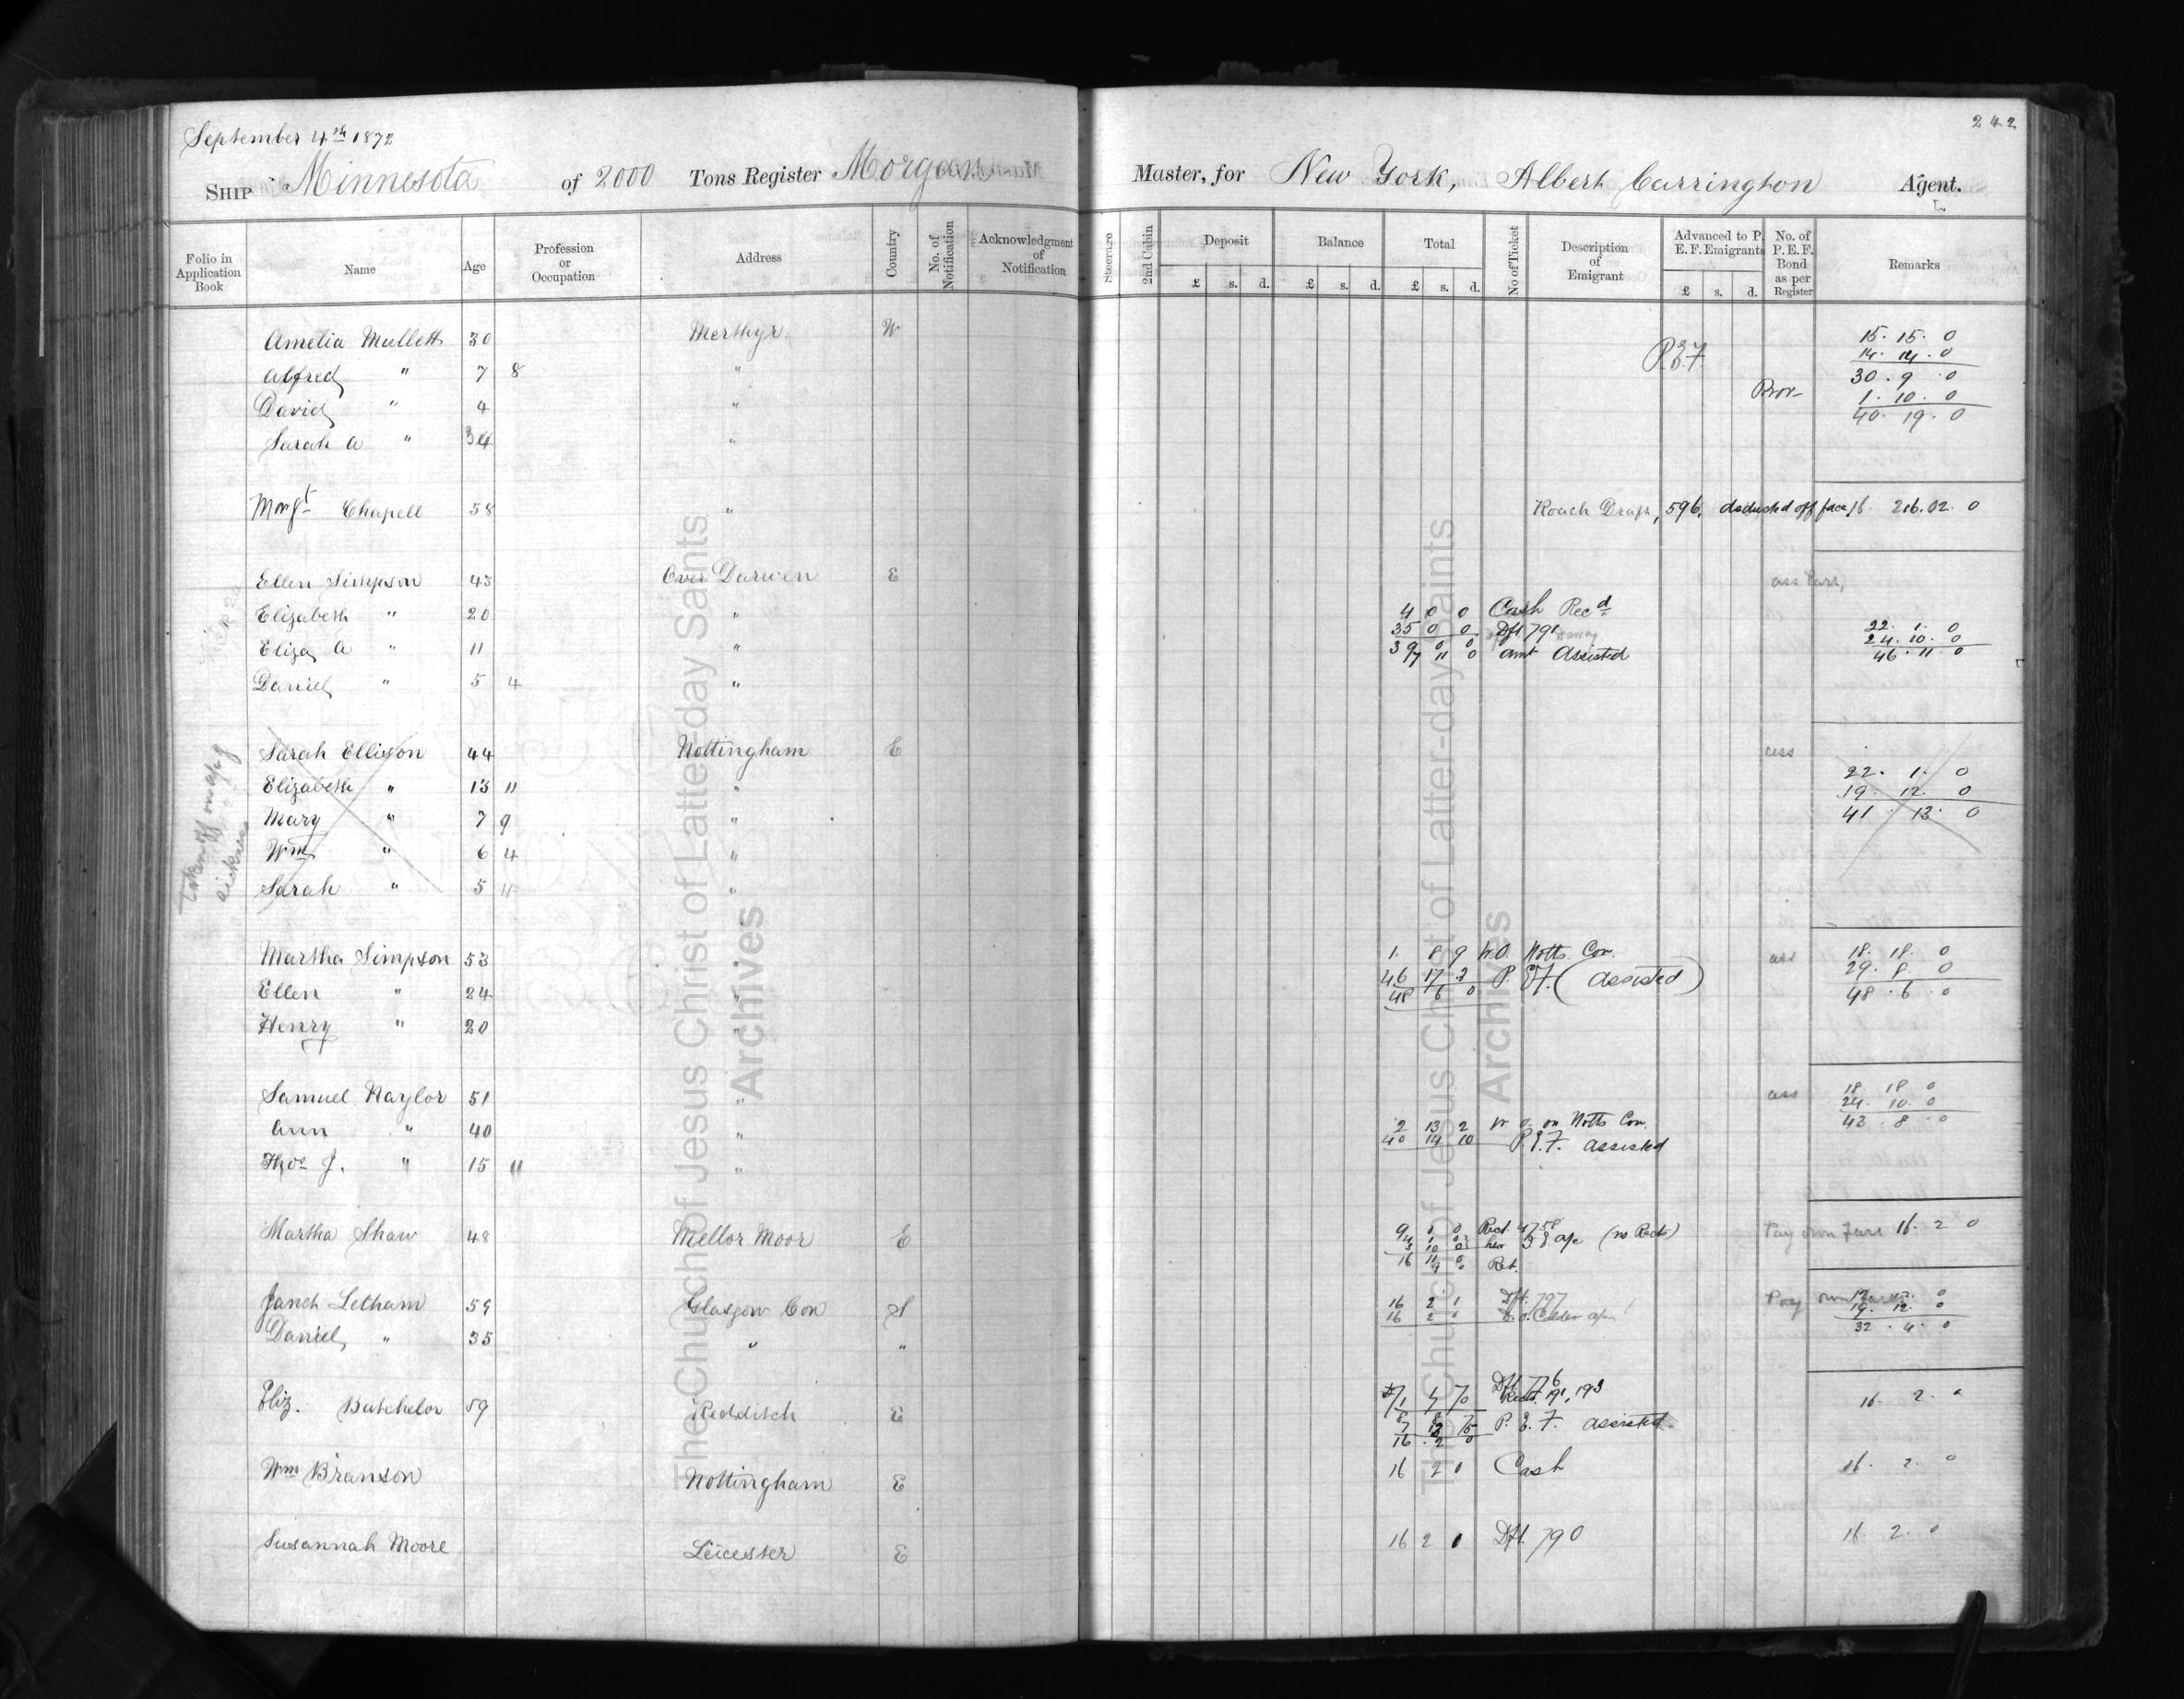 September 4th 1872
242
SHIP Minnesota of 2000 Tons Register Morgan Master, for New York, Albert Carrington Agent.
Folio in Application Book Name Age Profession or Occupation Address Country No. of Notification Acknowledgment of Notification Steerage 2nd Cabin Deposit £ s. d. Balance £ s. d. Total £ s. d. No of Ticket Description of Emigrant Advanced to P. E. F. Emigrants £ s. d. No. of P. E. F. Bond as per Register Remarks
Amelia Mullett 30 Merthyr W 15. 15. 0
14. 14. 0
Alfred " 7 8 " P.E.F. 30. 9. 0
David " 4 " Prov 1. 10. 0
40. 19. 0
Sarah A " 34 "
Margt Chapell 58 " Roach Draft, 596, deducted off face
Ellen Simpson 43 Over Darwen E ass Part,
Elizabeth " 20 " 4 0 0 Cash Recd
35 0 0 Dft. 791 22. 1. 0
24. 10. 0
Eliza A " 11 " 39 0 0
7 11 0 amt Assisted 46. 11. 0
Daniel " 5 4 "
taken off on a/c of sickness
Sarah Ellison 44 Nottingham E ass
Elizabeth " 13 11 " 22. 1. 0
19. 12. 0
Mary " 7 9 " 41. 13. 0
Wm " 6 4 "
Sarah " 5 "
Martha Simpson 53 1. 8 9 W.O. Notts. Con. ass 18. 18. 0
Ellen " 24 " 46 17 3 P.E.F. (Assisted) 29. 8. 0
48 6 0 48. 6. 0
Henry " 20 "
Samuel Naylor 51 " ass 18. 18 0
24. 10. 0
Ann " 40 " 2 13 2 W. O. on Notts Con. 43. 8. 0
40 14 10 P.E.F. assisted
Thos J. " 15 11 "
Martha Shaw 48 Mellor Moor E 9 0 0 Rect. 4758 Pay own Fare 16. 2 0
her a/c (no Rect)
16 11 0
9 0 Ret.
Janet Letham 59 Glasgow Con S 16 2 1 Dft. 797 Pay own Fare 12. 12. 0
19. 12. 0
16 2 Calder a/c 32. 4. 0
Daniel " 35 " "
Dft 776
Eliz. Batchelor 59 Redditch E Rect. 191, 193 16. 2.
P. E. F. assisted
16. 2 0
Wm Branson Nottingham E 16 2 0 Cash 16. 2. 0
Susannah Moore Leicester E 16 2 0 Dft. 790 16. 2. 0
The Church of Jesus Christ of Latter-day Saints
Archives
The Church of Jesus Christ of Latter-day Saints
Archives